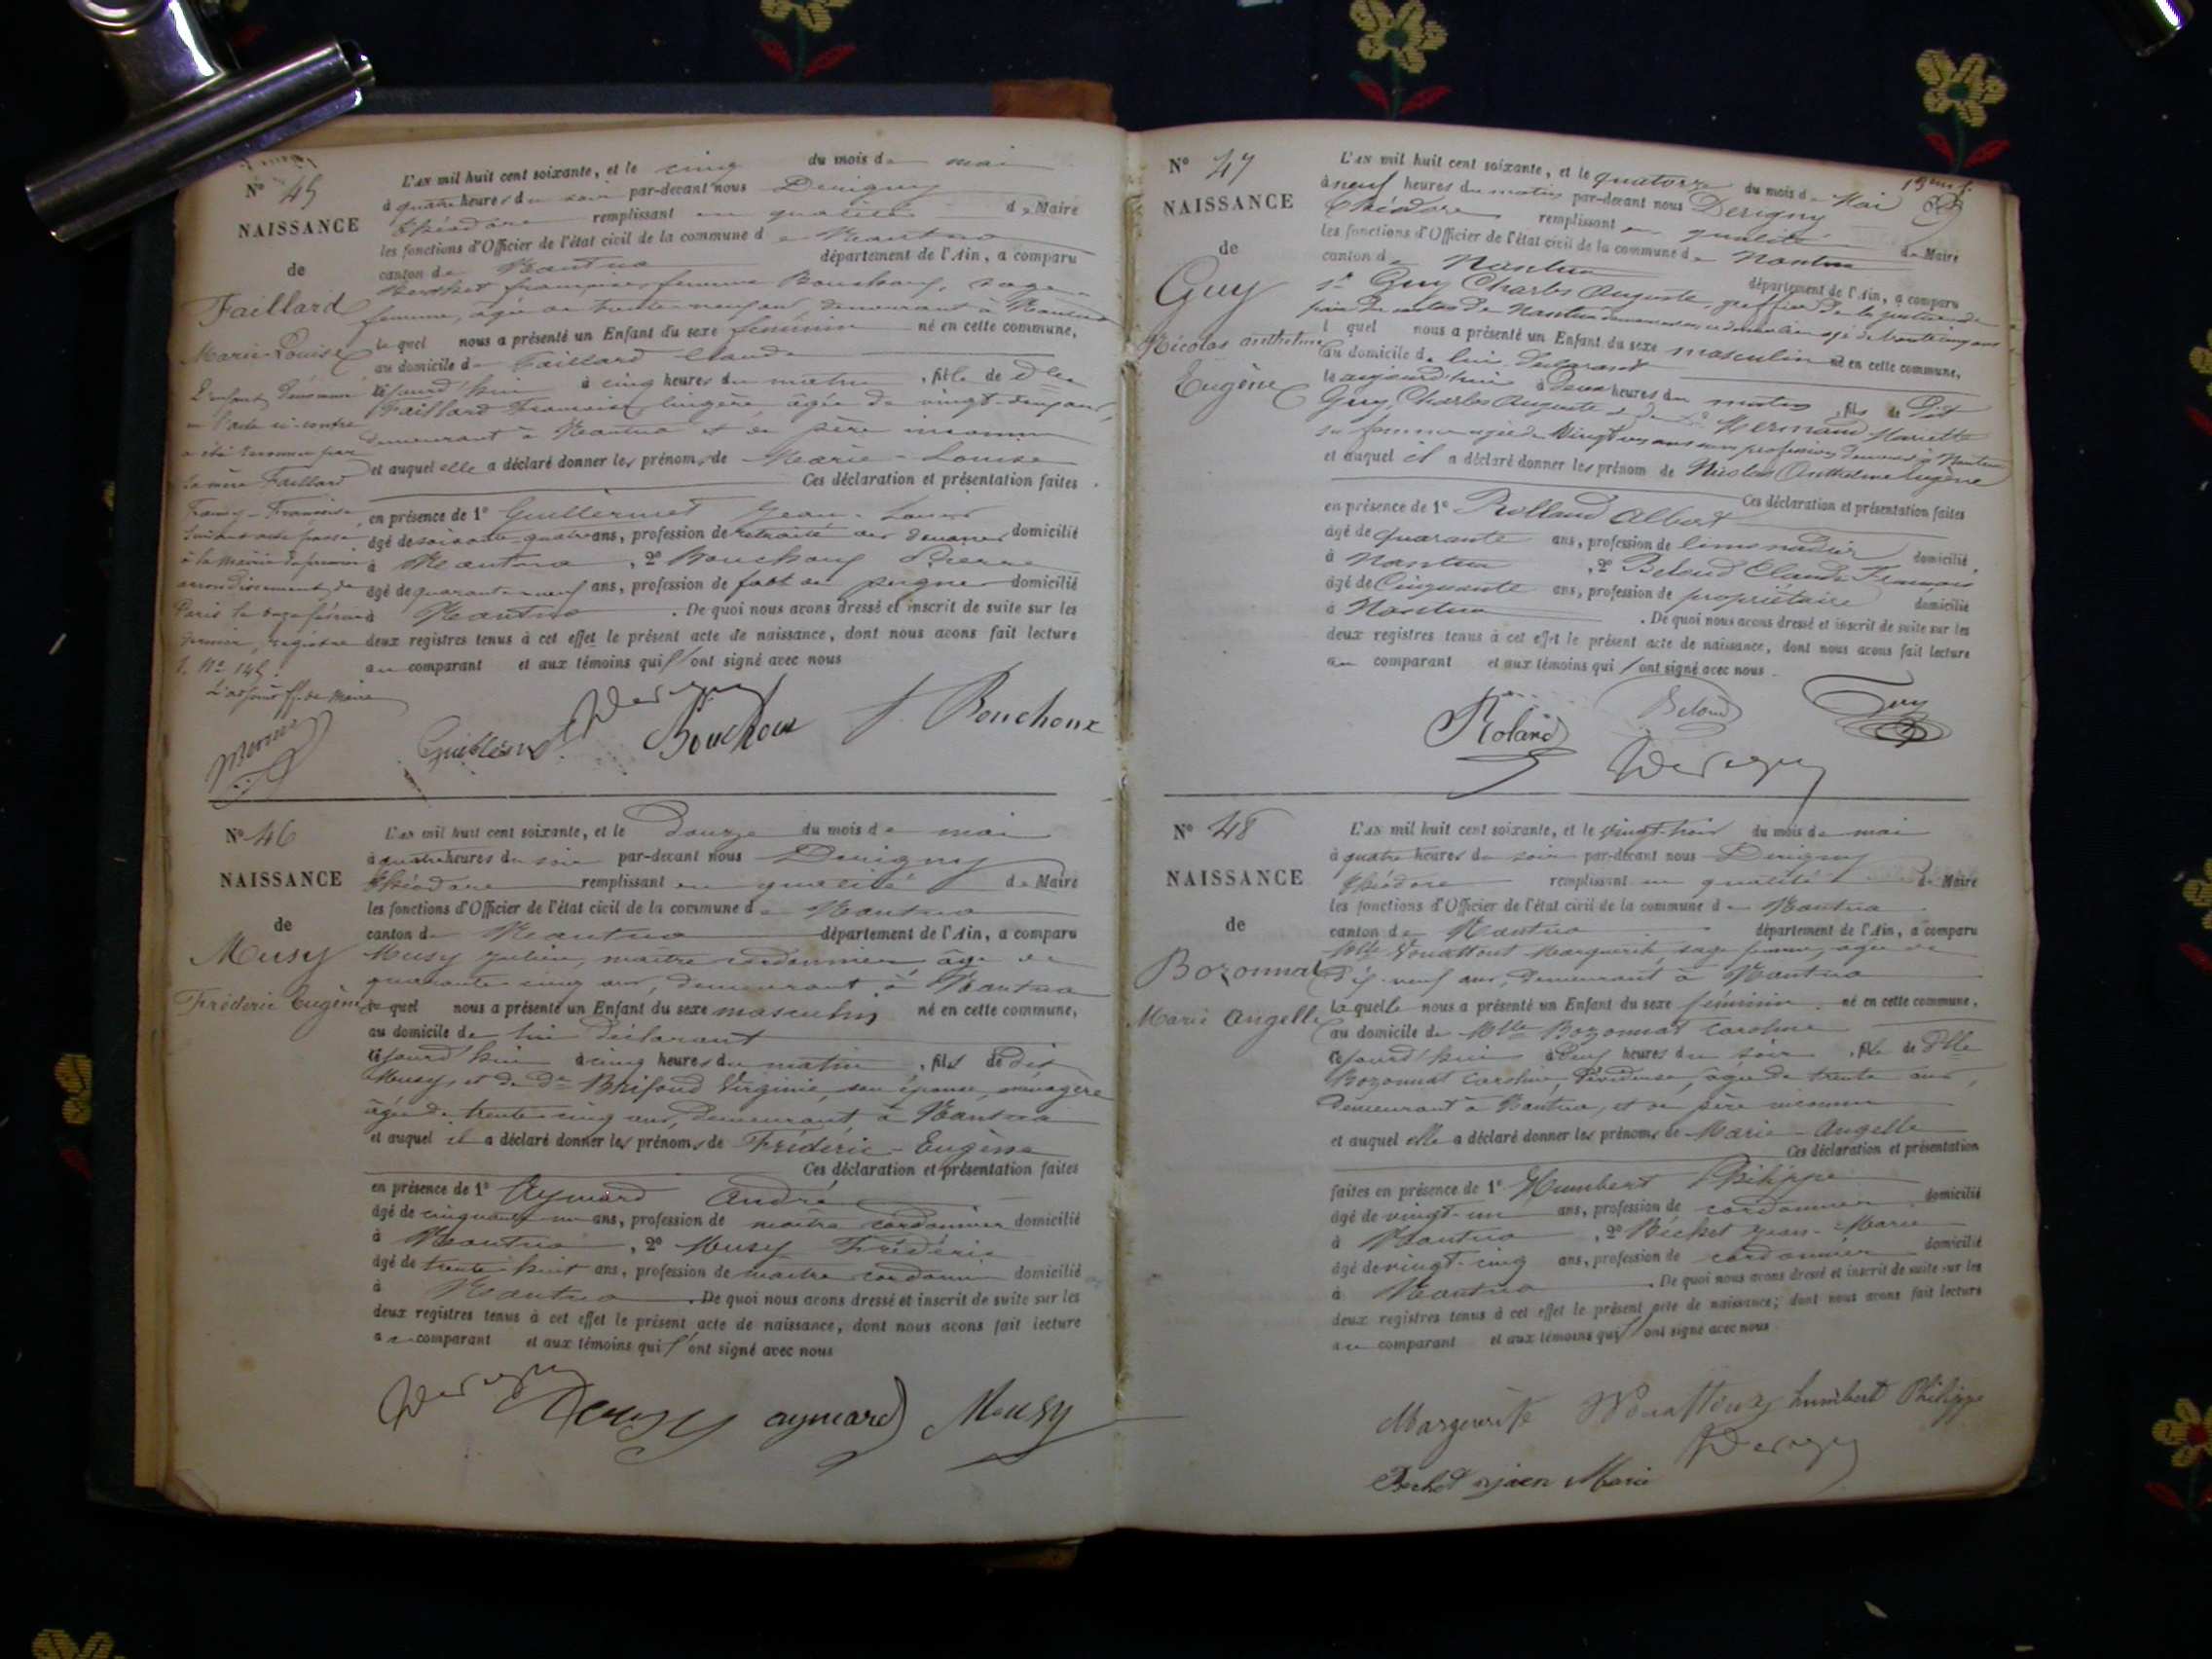 N° 45
NAISSANCE
de
Faillard
Marie-Louise
L'enfant dénommé
en l'acte ci-contre
a été reconnu par
sa mère Faillard
Fanny-Françoise
suivant acte passé
à la mairie du premier
arrondissement de
Paris le onze février
dernier, registre
1. N° 145.
L'adjoint ff. de Maire
L'AN mil huit cent soixante, et le cinq du mois de mai
à quatre heures du soir par-devant nous Derigny
Théodore remplissant en qualité de Maire
les fonctions d'Officier de l'état civil de la commune de Nantua
canton de Nantua département de l'Ain, a comparu
Berthet françoise, femme Bouchoux, sage-
femme, âgée de trente-neuf ans, demeurant à Nantua
lequel nous a présenté un Enfant du sexe féminin né en cette commune,
au domicile de Faillard Claude
cejourd'hui à cinq heures du matin, fille de Dlle
Faillard Françoise, lingère, âgée de vingt-deux ans,
demeurant à Nantua et de père inconnu
et auquel elle a déclaré donner les prénoms de Marie-Louise
Ces déclaration et présentation faites
en présence de 1° Guillermet Jean-Louis
âgé de soixante-quatre ans, profession de retraité des douanes domicilié
à Nantua, 2° Bouchoux Pierre
âgé de quarante-neuf ans, profession de fabt de peignes domicilié
à Nantua. De quoi nous avons dressé et inscrit de suite sur les
deux registres tenus à cet effet le présent acte de naissance, dont nous avons fait lecture
au comparant et aux témoins qui ont signé avec nous
Derigny
Bouchoux f. Bouchoux
N° 46
NAISSANCE
de
Musy
Fréderic Eugène
L'AN mil huit cent soixante, et le Douze du mois de mai
à quatre heures du soir par-devant nous Derigny
Théodore remplissant en qualité de Maire
les fonctions d'Officier de l'état civil de la commune de Nantua
canton de Nantua département de l'Ain, a comparu
Musy Julien, maître cordonnier, âgé de
quarante-cinq ans, demeurant à Nantua
lequel nous a présenté un Enfant du sexe masculin né en cette commune,
au domicile de lui déclarant
cejourd'hui à cinq heures du matin, fils de dit
Musy, et de De Brifoud Virginie, son épouse, ménagère
âgée de trente-cinq ans, demeurant à Nantua
et auquel il a déclaré donner les prénoms de Fréderic-Eugène
Ces déclaration et présentation faites
en présence de 1° Aymard André
âgé de cinquante-un ans, profession de maître cordonnier domicilié
à Nantua, 2° Musy Frédéric
âgé de trente-huit ans, profession de maître cordonnier domicilié
à Nantua. De quoi nous avons dressé et inscrit de suite sur les
deux registres tenus à cet effet le présent acte de naissance, dont nous avons fait lecture
au comparant et aux témoins qui ont signé avec nous
Derigny Musy aymard Musy
N° 47
NAISSANCE
de
Guy
Nicolas anthelme
Eugène
L'AN mil huit cent soixante, et le quatorze du mois de Mai
à neuf heures du matin par-devant nous Derigny
Théodore remplissant en qualité de Maire
les fonctions d'Officier de l'état civil de la commune de Nantua
canton de Nantua département de l'Ain, a comparu
sr Guy Charles Auguste, greffier de la justice de
paix du canton de Nantua demeurant en cette ville âgé de trente cinq ans
l quel nous a présenté un Enfant du sexe masculin né en cette commune,
au domicile de lui déclarant
le aujourd'hui à Deux heures du matin, fils de Dit
Guy Charles Auguste et de Mermand Mariette
sa femme agée de Vingt un ans sans profession demeurant à Nantua
et auquel il a déclaré donner les prénom de Nicolas Anthelme Eugène
Ces déclaration et présentation faites
en présence de 1° Rolland Albert
âgé de quarante ans, profession de limonadier domicilié
à Nantua, 2° Beloud Claude François
âgé de Cinquante ans, profession de propriétaire domicilié
à Nantua. De quoi nous avons dressé et inscrit de suite sur les
deux registres tenus à cet effet le présent acte de naissance, dont nous avons fait lecture
au comparant et aux témoins qui ont signé avec nous.
Roland Beloud Guy
Derigny
N° 48
NAISSANCE
de
Bozonnat
Marie Angelle
L'AN mil huit cent soixante, et le vingt-trois du mois de mai
à quatre heures du soir par-devant nous Derigny
Théodore remplissant en qualité de Maire
les fonctions d'Officier de l'état civil de la commune de Nantua
canton de Nantua département de l'Ain, a comparu
Marguerite, sage femme, agée de
dix-neuf ans, demeurant à Nantua
laquelle nous a présenté un Enfant du sexe féminin né en cette commune,
au domicile de Mlle Bozonnat Caroline
cejourd'hui à deux heures du soir, fille de Dlle
Bozonnat Caroline, dévideuse, âgée de trente ans,
demeurant à Nantua, et de père inconnu
et auquel elle a déclaré donner les prénoms de Marie-Angelle
Ces déclaration et présentation
faites en présence de 1° Humbert Philippe
âgé de vingt-un ans, profession de cordonnier domicilié
à Nantua, 2° Béchet Jean-Marie
âgé de vingt-cinq ans, profession de cordonnier domicilié
à Nantua. De quoi nous avons dressé et inscrit de suite sur les
deux registres tenus à cet effet le présent acte de naissance; dont nous avons fait lecture
au comparant et aux témoins qui ont signé avec nous
Marguerite humbert Philippe
Derigny